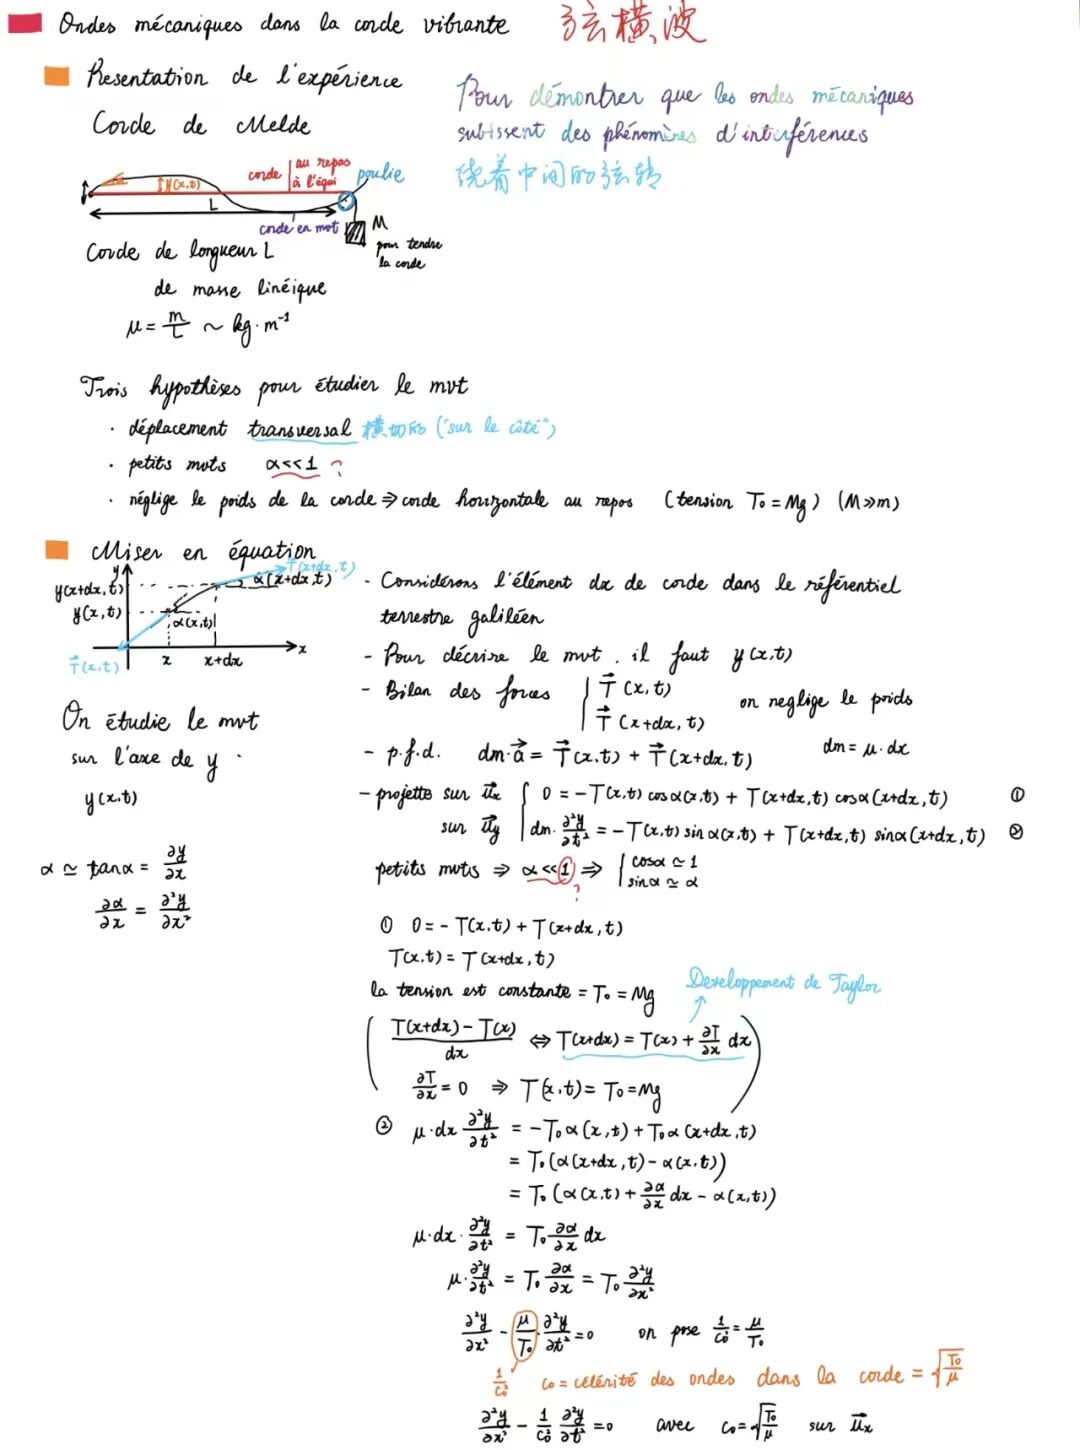 Ondes mécaniques dans la corde vibrante 弦横波
Presentation de l'expérience
Pour démontrer que les ondes mécaniques
subissent des phénomènes d'interférences
Corde de Melde
绕着中间的弦转
corde | au repos à l'équi
poulie
y(x,t)
L
corde en mvt
M
pour tendre
la corde
Corde de longueur L
de masse linéique
μ = m/L ~ kg·m⁻¹
Trois hypothèses pour étudier le mvt
· déplacement transversal 横切的 ("sur le côté")
· petits mvts α<<1 ?
· néglige le poids de la corde ⇒ corde horizontale au repos (tension T₀ = Mg) (M≫m)
Miser en équation
y
T⃗(x+dx,t)
y(x+dx,t)
α(x+dx,t)
y(x,t)
α(x,t)
T⃗(x,t)
x
x+dx
x
On étudie le mvt
sur l'axe de y .
y(x,t)
α ≃ tanα = ∂y/∂x
∂α/∂x = ∂²y/∂x²
- Considérons l'élément dx de corde dans le référentiel
terrestre galiléen
- Pour décrire le mvt, il faut y(x,t)
- Bilan des forces { T⃗(x,t) T⃗(x+dx,t) on neglige le poids
- p.f.d. dm·a⃗ = T⃗(x,t) + T⃗(x+dx,t) dm = μ·dx
- projette sur u⃗x { 0 = -T(x,t) cosα(x,t) + T(x+dx,t) cosα(x+dx,t) ①
sur u⃗y { dm·∂²y/∂t² = -T(x,t) sinα(x,t) + T(x+dx,t) sinα(x+dx,t) ②
petits mvts ⇒ α<<1 ⇒ { cosα ≃ 1 sinα ≃ α
?
① 0 = - T(x,t) + T(x+dx,t)
T(x,t) = T(x+dx,t)
la tension est constante = T₀ = Mg
Developpement de Taylor
( (T(x+dx) - T(x))/dx ⇔ T(x+dx) = T(x) + ∂T/∂x dx
∂T/∂x = 0 ⇒ T(x,t) = T₀ = Mg )
② μ·dx ∂²y/∂t² = -T₀α(x,t) + T₀α(x+dx,t)
= T₀(α(x+dx,t) - α(x,t))
= T₀(α(x,t) + ∂α/∂x dx - α(x,t))
μ·dx·∂²y/∂t² = T₀ ∂α/∂x dx
μ·∂²y/∂t² = T₀ ∂α/∂x = T₀ ∂²y/∂x²
∂²y/∂x² - μ/T₀·∂²y/∂t² = 0 on pose 1/c₀² = μ/T₀
1/c₀² c₀ = célérité des ondes dans la corde = √(T₀/μ)
∂²y/∂x² - 1/c₀² ∂²y/∂t² = 0 avec c₀ = √(T₀/μ) sur u⃗x